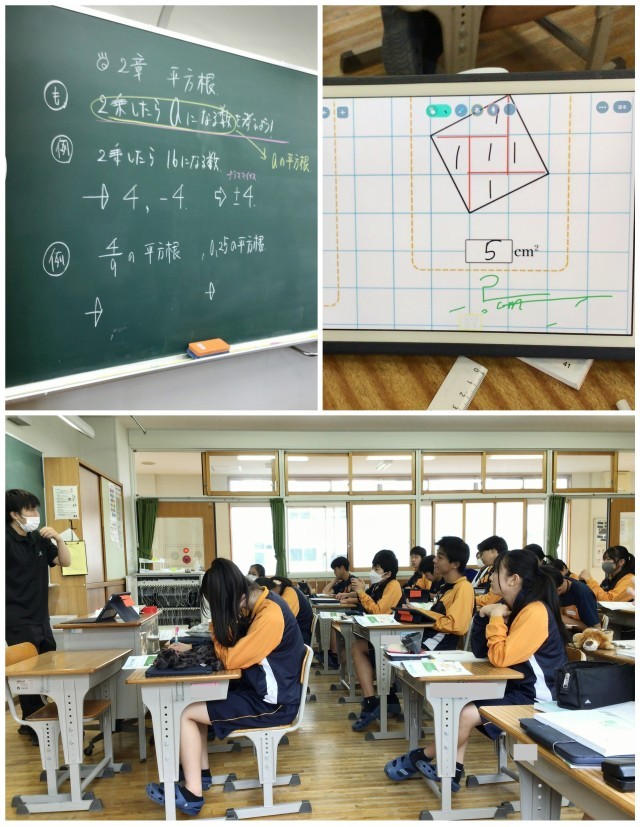 2章 平方根
も 2乗したら a になる数を考えよう!
→ aの平方根
例 2乗したら 16になる数
プラスマイナス
→ 4, -4. ⇨ ±4.
例 4/9 の平方根 , 0.25の平方根
→ →
1
1 1 1
1
5 cm²
? cm
41
0 1 2 3